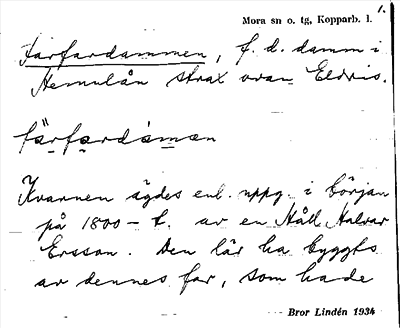 1.
Mora sn o. tg, Kopparb. l.
Farfardammen, f. d. damm i
Hemulån strax ovan Eldris.
fä̀rfardámän
Kvarnen ägdes enl. uppg. i början
på 1800-t. av en Håll Halvar
Ersson. Den lär ha byggts
av dennes far, som hade
Bror Lindén 1934